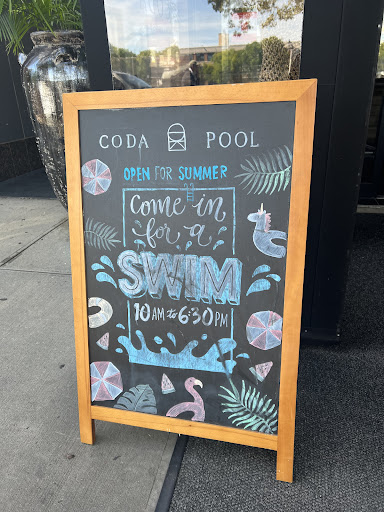 CODA POOL
OPEN FOR SUMMER
Come in
for a
SWIM
10AM to 6:30PM